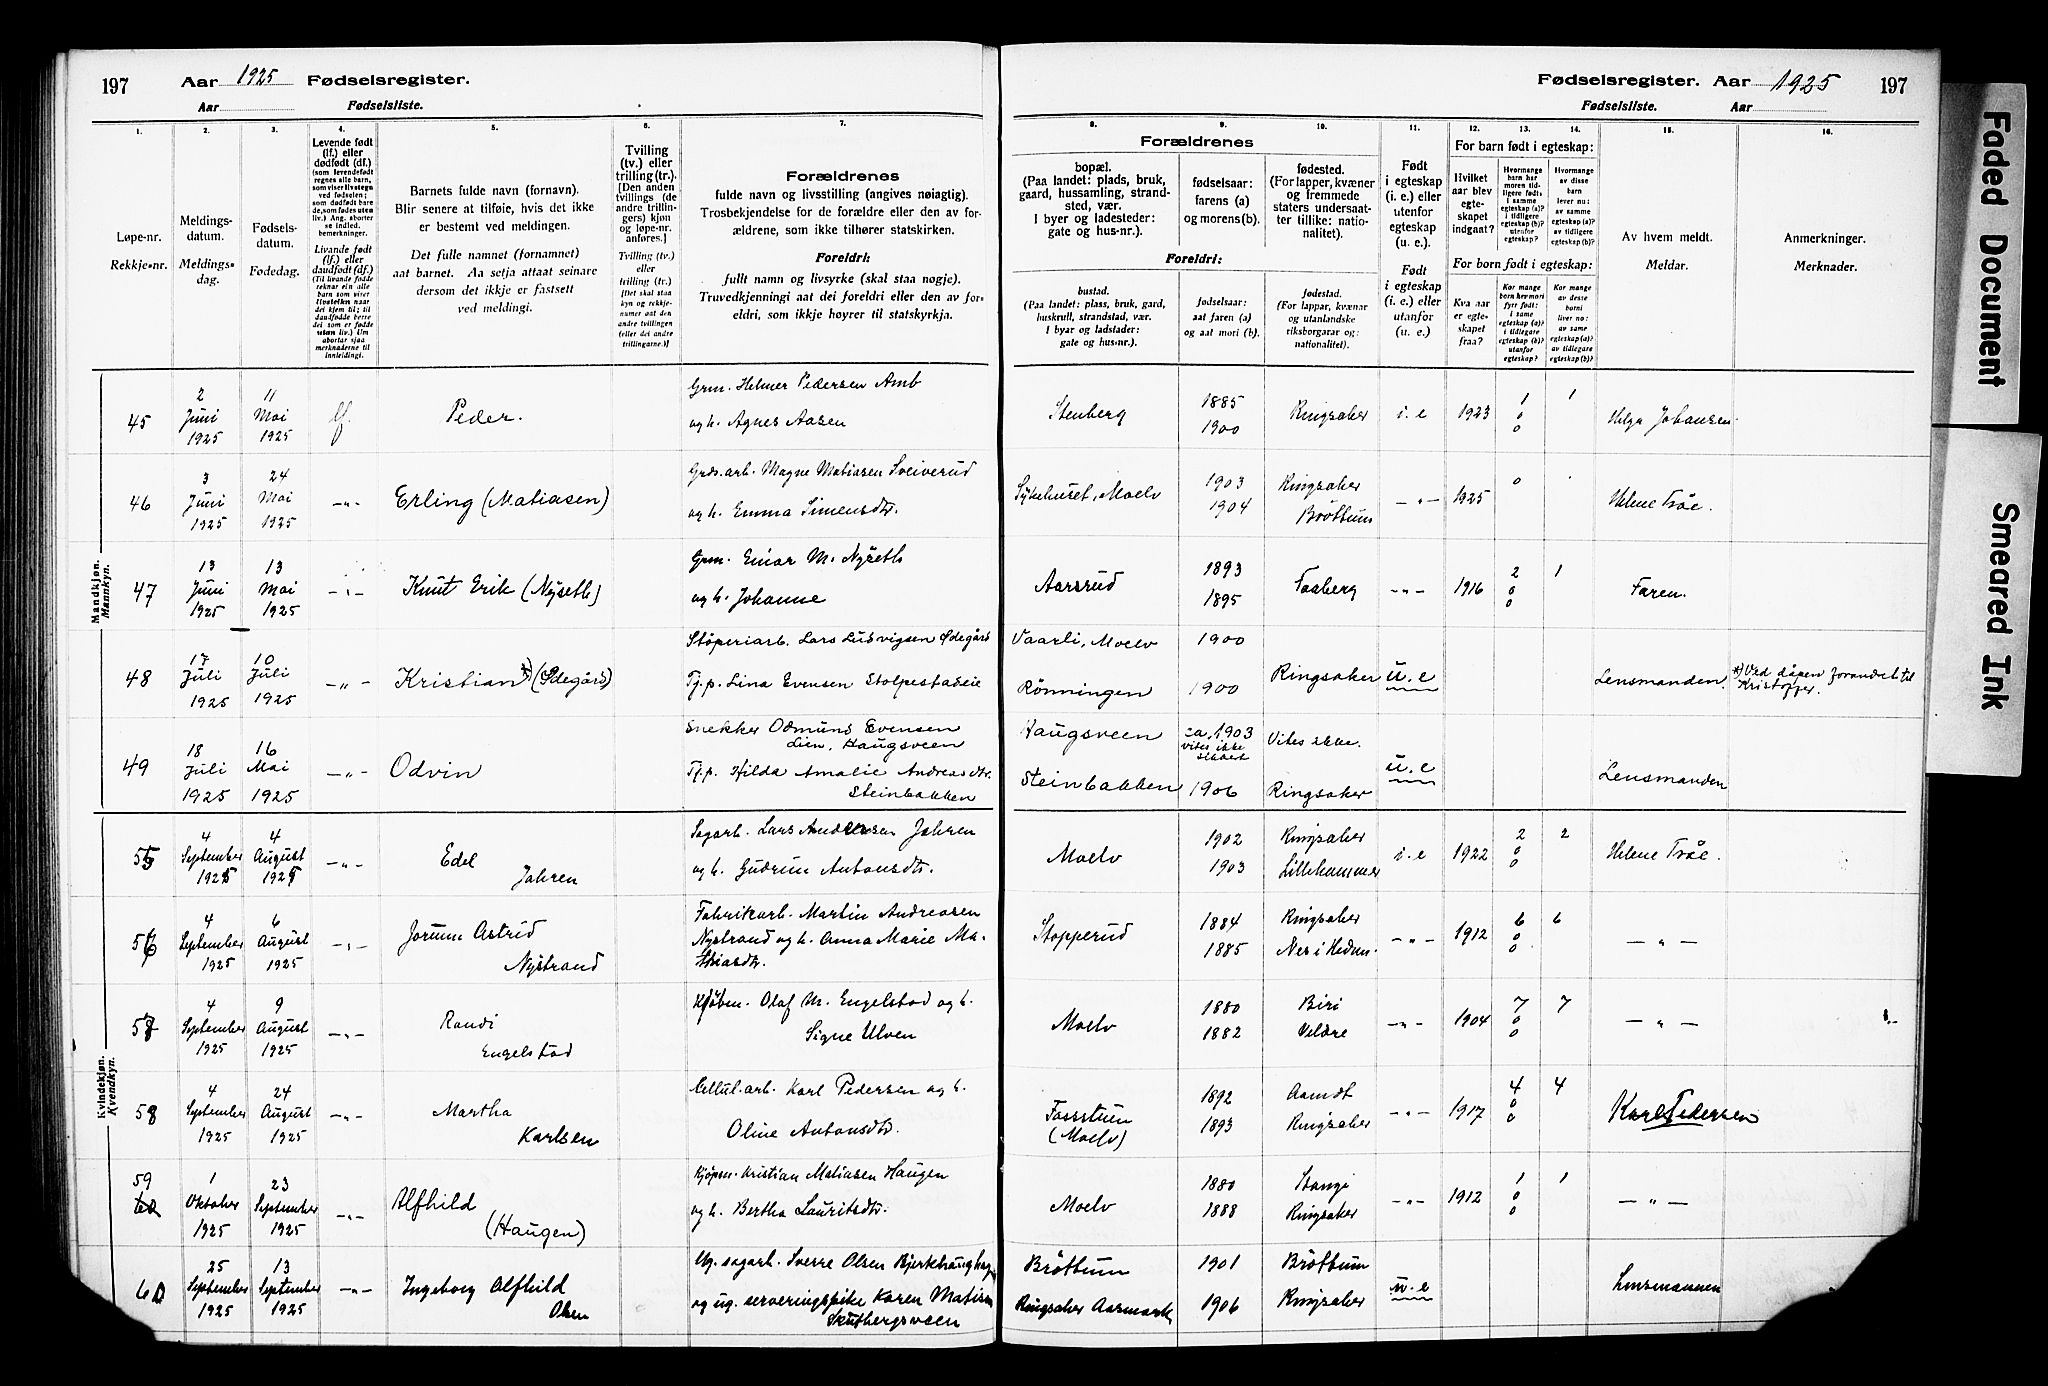 197 Aar 1925 Fødselsregister.
Aar Fødselsliste.
Fødselsregister. Aar 1925 197
Fødselsliste. Aar
1. 2. 3. 4. 5. 6. 7.
8. 9. 10. 11. 12. 13. 14. 15. 16.
Løpe-nr.
Rekkje-nr.
Meldings-
datum.
Meldings-
dag.
Fødsels-
datum.
Fødedag.
Levende født
(lf.) eller
dødfødt (df.)
Livande født
(lf.) eller
daudfødt (df.)
Barnets fulde navn (fornavn).
Blir senere at tilføie, hvis det ikke
er bestemt ved meldingen.
Det fulle namnet (fornamnet)
aat barnet. Aa setja attaat seinare
dersom det ikkje er fastsett
ved meldingi.
Tvilling
(tv.) eller
trilling (tr.)
[Den anden
tvillings (de
andre trillin-
gers) kjøn
og løpe-nr.
anføres.]
Tvilling (tv.)
eller
trilling (tr.)
Forældrenes
fulde navn og livsstilling (angives nøiagtig).
Trosbekjendelse for de forældre eller den av for-
ældrene, som ikke tilhører statskirken.
Foreldri:
fullt namn og livsyrke (skal staa nøgje).
Truvedkjenningi aat dei foreldri eller den av for-
eldri, som ikkje høyrer til statskyrkja.
Forældrenes
bopæl.
(Paa landet: plads, bruk,
gaard, hussamling, strand-
sted, vær.
I byer og ladesteder:
gate og hus-nr.).
fødselsaar:
farens (a)
og morens (b).
fødested.
(For lapper, kvæner
og fremmede
staters undersaat-
ter tillike: natio-
nalitet).
Foreldri:
bustad.
(Paa landet: plass, bruk, gard,
huskrull, strandstad, vær.
I byar og ladstader:
gate og hus-nr.).
fødselsaar:
aat faren (a)
og aat mori (b).
fødestad.
(For lappar, kvænar
og utanlandske
riksborgarar og:
nationalitet).
Født
i egteskap
(i. e.) eller
utenfor
egteskap
(u. e.).
Født
i egteskap
(i. e.) eller
utanfor
(u. e.)
For barn født i egteskap:
Hvilket
aar blev
egte-
skapet
indgaat?
For born født i egteskap:
Kva aar
er egte-
skapet
fraa?
Av hvem meldt.
Meldar.
Anmerkninger.
Merknader.
Mandkjøn.
Mannkyn.
45 2 Juni 1925 11 Mai 1925 lf. Peder. Grm. Helmer Pedersen Amb
og h. Agnes Aasen Stenberg 1885 1900 Ringsaker i. e 1923 1 0 0 1 Helga Johansen.
46 3 Juni 1925 24 Mai 1925 -"- Erling (Matiasen) Grds.arb. Magne Matiasen Sveiverud
og h. Emma Simensdtr. Sykehuset, Moelv 1903 1904 Ringsaker Brøttum -"- 1925 0 Helene Trøe.
47 13 Juni 1925 13 Mai 1925 -"- Knut Erik (Nyseth) Grm. Einar M. Nyseth
og h. Johanne Aarsrud 1893 1895 Faaberg -"- 1916 2 0 0 1 Faren.
48 17 Juli 1925 10 Juli 1925 -"- Kristian *) (Ødegård) Støperiarb. Lars Ludvigsen Ødegård
Tj.p. Lina Evensen Stolpestaseie Vaarli, Moelv Rönningen 1900 1900 Ringsaker u. e Lensmanden. *) Ved dåpen forandret til
Kristoffer.
49 18 Juli 1925 16 Mai 1925 -"- Odvin Snekker Odmund Evensen
Lien, Haugsveen
Tj.p. Hilda Amalie Andreasdtr.
Steinbakken Haugsveen Steinbakken ca. 1903
vites ikke
sikkert 1906 Vites ikke. Ringsaker u. e Lensmanden
Kvindekjøn.
Kvendkyn.
55 4 September 1925 4 August 1925 -"- Edel
Jahren Sagarb. Lars Andersen Jahren
og h. Gudrun Antonsdtr. Moelv 1902 1903 Ringsaker Lillehammer i. e 1922 2 0 0 2 Helene Trøe.
56 4 September 1925 6 August 1925 -"- Jorunn Astrid
Nystrand Fabrikarb. Martin Andreasen
Nystrand og h. Anna Marie Ma-
thiasdtr. Stopperud 1884 1885 Ringsaker Nes i Hedm. -"- 1912 6 0 0 6 -"-
57 4 September 1925 9 August 1925 -"- Randi
Engelstad Kjøbm. Olaf M. Engelstad og h.
Signe Ulven Moelv 1880 1882 Biri Veldre -"- 1904 7 0 0 7 -"-
58 4 September 1925 24 August 1925 -"- Martha
Karlsen Cellul.arb. Karl Pedersen og h.
Oline Antonsdtr. Fossstuen
(Moelv) 1892 1893 Aamdt Ringsaker -"- 1917 4 0 0 4 Karl Pedersen
59 1 Oktober 1925 23 September 1925 -"- Alfhild
(Haugen) Kjøpm. Kristian Matiasen Haugen
og h. Bertha Lauritsdtr. Moelv 1880 1888 Stange Ringsaker -"- 1912 1 0 0 1 -"-
60 25 September 1925 13 September 1925 -"- Ingeborg Alfhild
Olsen Ug. sagarb. Sverre Olsen Bjerkehaughagen
og ug. serveringspike Karen Matisen
Skutbergsveen Brøttum Ringsaker Aasmark 1901 1906 Brøttum Ringsaker u. e Lensmannen
Faded Document
Smeared Ink